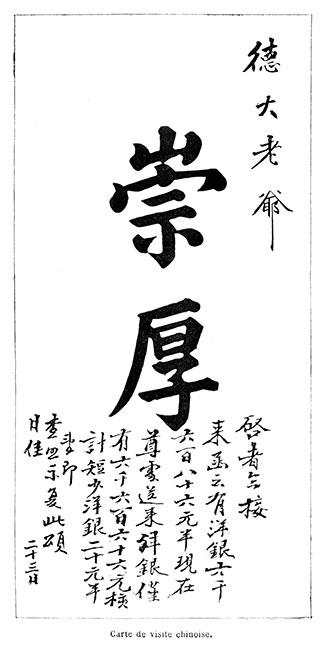 德大老爺
崇厚
啓者接
来函云有洋銀六千
六百八十六元半現在
尊處送来洋銀僅
有六千六百六十六元核
計短少洋銀二十元半
即
查照示复此頌
日佳
二十三日
Carte de visite chinoise.